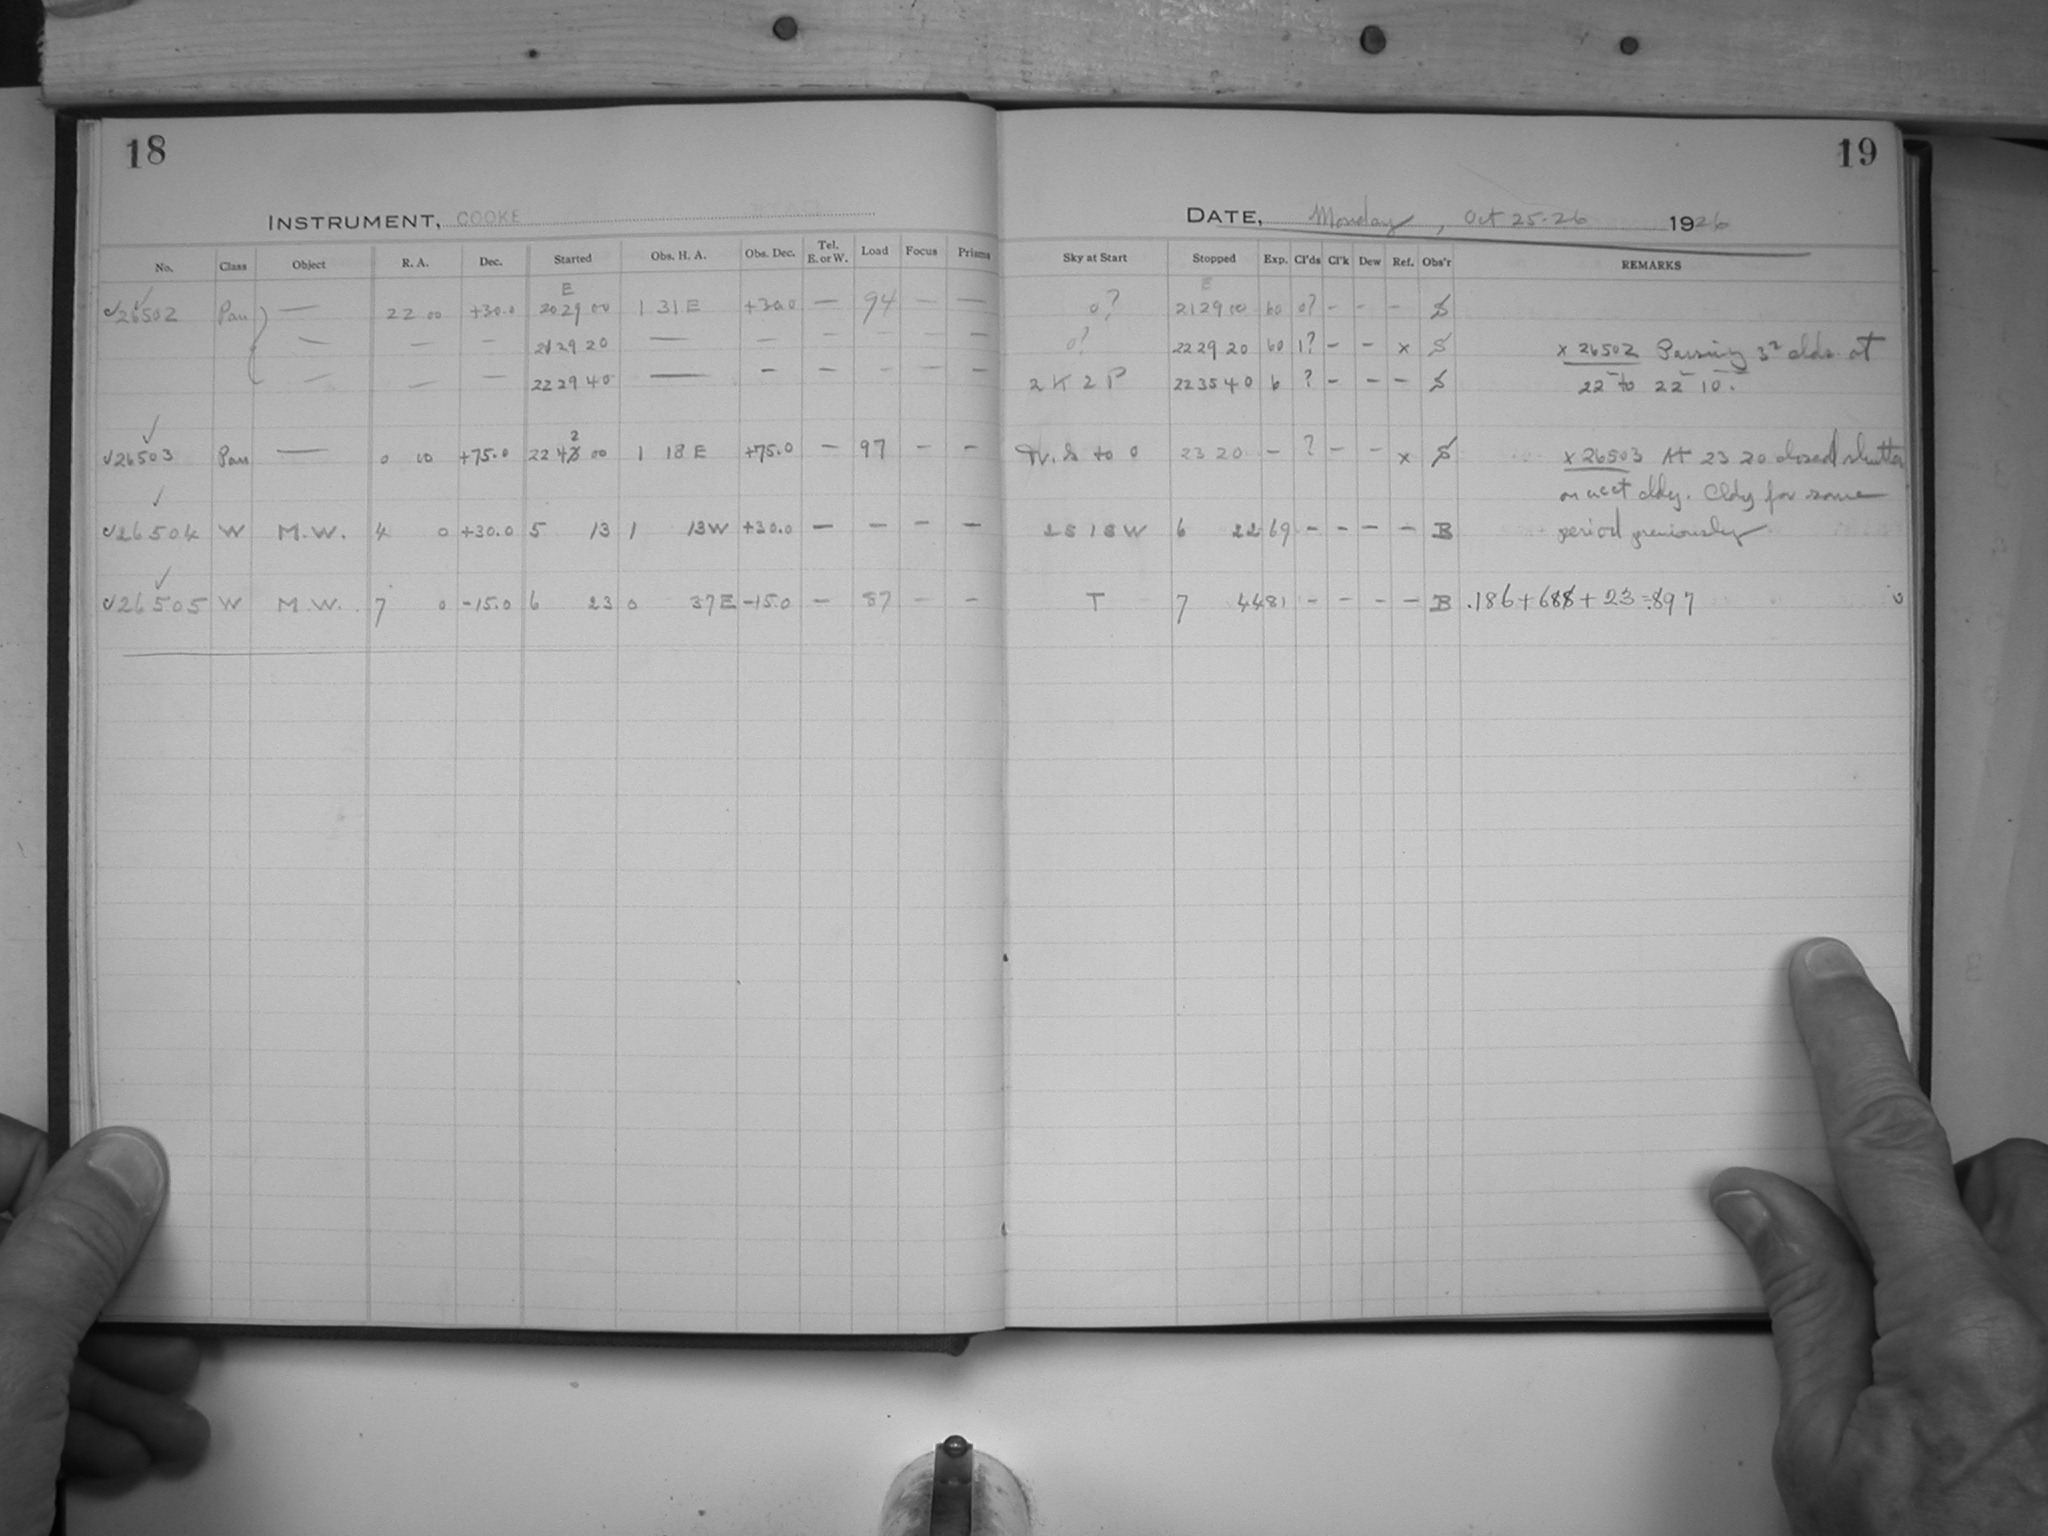 18
19
INSTRUMENT, COOKE
DATE, Monday, Oct 25-26 1926
No. Class Object R. A. Dec. Started Obs. H. A. Obs. Dec. Tel. E. or W. Load Focus Prisms Sky at Start Stopped Exp. Cl'ds Cl'k Dew Ref. Obs'r REMARKS
E E
✓26502 Pan — 22 00 +30.0 20 29 00 1 31 E +30.0 — 94 — — 0? 21 29 00 60 0? – – – S
— — — 21 29 20 — — — – – – 0? 22 29 20 60 1? – – x S x 26502 Passing 3² clds at
— — — 22 29 40 — — — – – – 2 K 2 P 22 35 40 6 ? – – – S 22 – to 22 – 10 –.
✓26503 Pan — 0 00 +75.0 22 42 00 1 18 E +75.0 — 97 – – 23 20 – ? – – x S x 26503 At 23 20 closed shutter
on acct cldy. Cldy for some
✓26504 W M.W. 4 0 +30.0 5 13 1 13 W +30.0 – – – – 2 S 1 S W 6 22 69 – – – – B period previously
✓26505 W M.W. 7 0 -15.0 6 23 0 37 E -15.0 – 87 – – T 7 44 81 – – – – B .186+688+23=.897